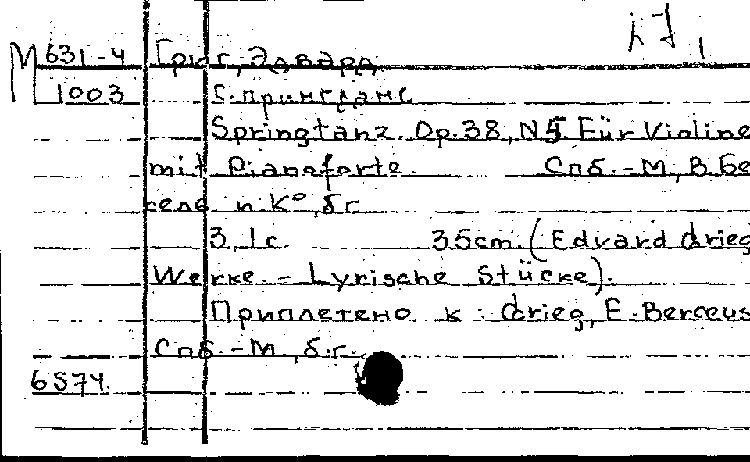 М 631-4 Григ, Эдвард
1003 Спрингданс
Springtanz. Op.38, N5. Für Violine
mit Pianoforte. Спб.-М, В.Бе
ссель и К°, б.г.
3, 1с. 35cm. (Edvard Grieg
Werke. - Lyrische Stücke).
Приплетено к: Grieg, E. Berceus
Спб.-М, б.г.
6574.